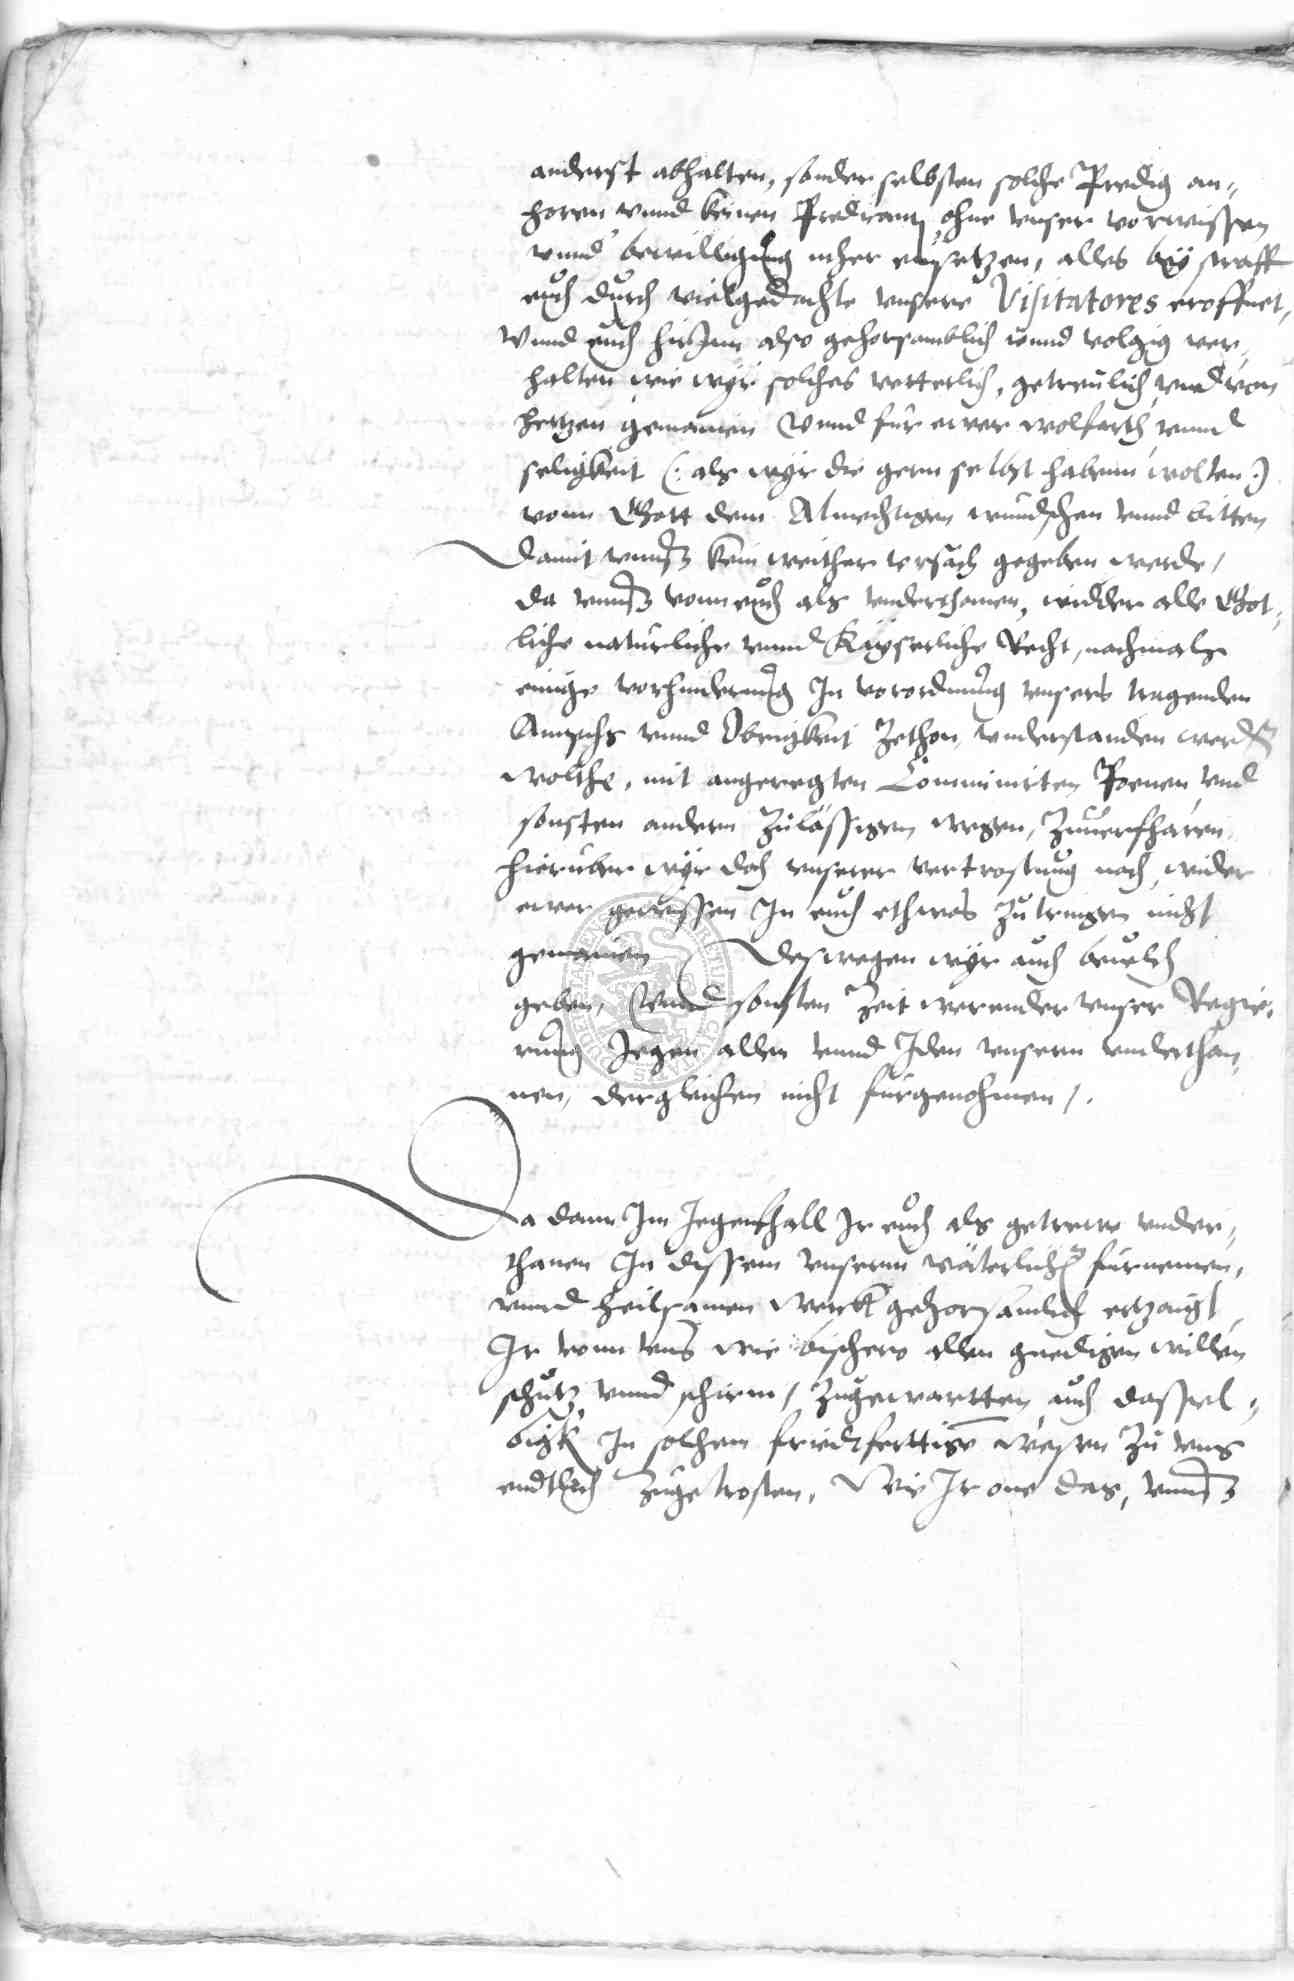 anderst abhalten, sonder selbsten solche Predig an¬
horen vnnd keinen Predicanten ohne vnser vorwissen
vnnd bewilligung nicher einsetzen, alles bey straff
euch durch vielgedachte vnsere Visitatores eroffnet,
Vnnd euch hirJnn also gehorsamblich vnnd volgig ver¬
halten wie wyr solches vetterlich, getreulich vnd von
hertzen gemainen Vnnd fur ewer wolfarth vnnd
seligkeit (: als wyr die gern selbst habenn wolten :)
vonn Gott dem Almechtigen wundschen vnnd bitten
Damit vnnß kein weither vrsach gegeben werde,
da vnnß vonn euch als vnderthanen, widder alle Got¬
liche naturliche vnnd Kayserliche Recht, nachmals
einige vorhinderung Jn verordnung vnsers tragenden
Amptß vnnd Obrigkeit Zethon vnderstanden werden
wolthe, mit angeregten Comminirten Poenen vnd
sonsten andern Zulässigen wegen, Zuuerfharen
hieruber wyr doch vnserer vertrostung nach, wider
ewer gewissen Jn euch ethwas Zu tringen nicht
gemainen Deswegen wyr auch beuelch
geben, Vnnd sonsten Zeit werender vnser Regie¬
rung Jegen allen vnnd Jden vnsern vnderthan¬
nen, dergleichen nicht furgenohmen,.
Da dann Jm Jegenfhall Jr euch als getrewe vnder¬
thanen Jn dissem vnserm väterlichen furnemen,
vnnd heilsamen Werck gehorsamlich ertzaigt
Jr vonn vns wie bischero allen gnedigen willen
schutz vnnd schirm, Zugewartten auch dassel¬
bigk Jn solchem friedtfertigen wesen Zu vns
endtlich Zugetrosten, Wie Jr one das, vnnß